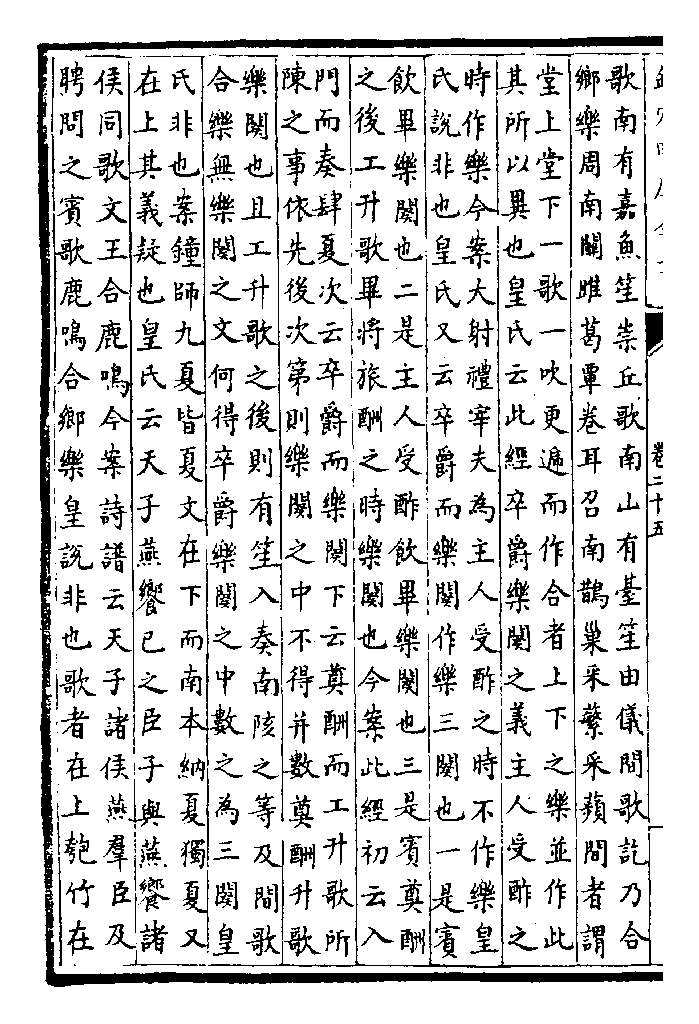 卷二十五
歌南有嘉魚笙崇丘歌南山有臺笙由儀間歌訖乃合
鄉樂周南關雎葛覃卷耳召南鵲巢采蘩采蘋間者謂
堂上堂下一歌一吹更遍而作合者上下之樂並作此
其所以異也皇氏云此經卒爵樂闋之義主人受酢之
時作樂今案大射禮宰夫為主人受酢之時不作樂皇
氏說非也皇氏又云卒爵而樂闋作樂三闋也一是賓
飲畢樂闋也二是主人受酢飲畢樂闋也三是賓奠酬
之後工升歌畢將旅酬之時樂闋也今案此經初云入
門而奏肆夏次云卒爵而樂闋下云奠酬而工升歌所
陳之事依先後次第則樂闋之中不得并數奠酬升歌
樂闋也且工升歌之後則有笙入奏南陔之等及間歌
合樂無樂闋之文何得卒爵樂闋之中數之為三闋皇
氏非也案鐘師九夏皆夏文在下而南本納夏獨夏又
在上其義疑也皇氏云天子燕饗己之臣子與燕饗諸
侯同歌文王合鹿鳴今案詩譜云天子諸侯燕羣臣及
聘問之賓歌鹿鳴合鄉樂皇說非也歌者在上匏竹在